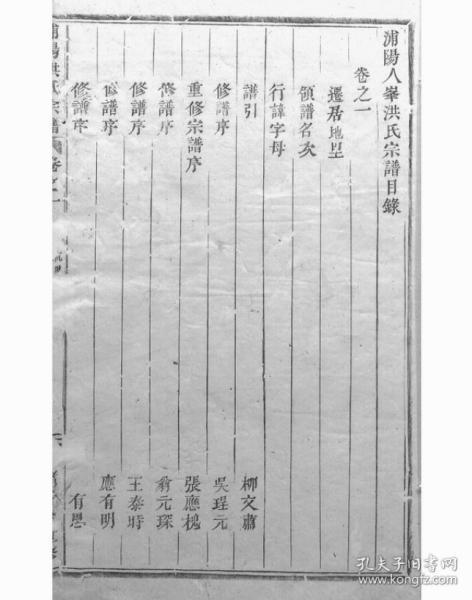 浦陽人峯洪氏宗譜目錄
卷之一
遷居地里
領譜名次
行諱字母
譜引 柳文肅
修譜序 吳珵元
重修宗譜序 張應槐
修譜序 翁元琛
修譜序 王泰時
修譜序 應有明
修譜序 有恩
浦陽洪氏宗譜 卷之一
孔夫子旧书网
www.kongfz.com